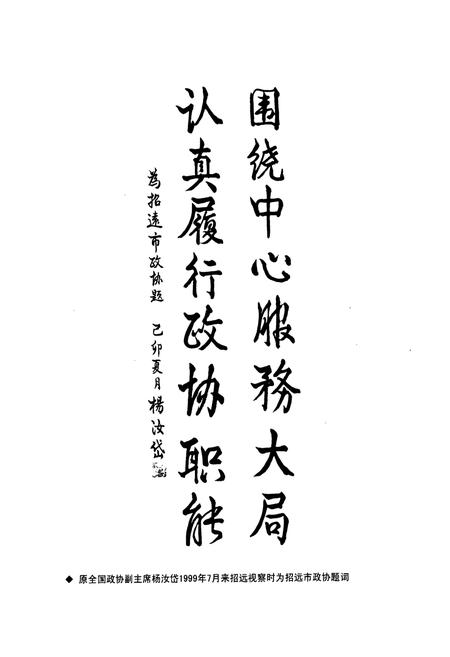 围绕中心服務大局
认真履行政协职能
為招遠市政协题 己卯夏月楊汝岱
◆ 原全国政协副主席杨汝岱1999年7月来招远视察时为招远市政协题词